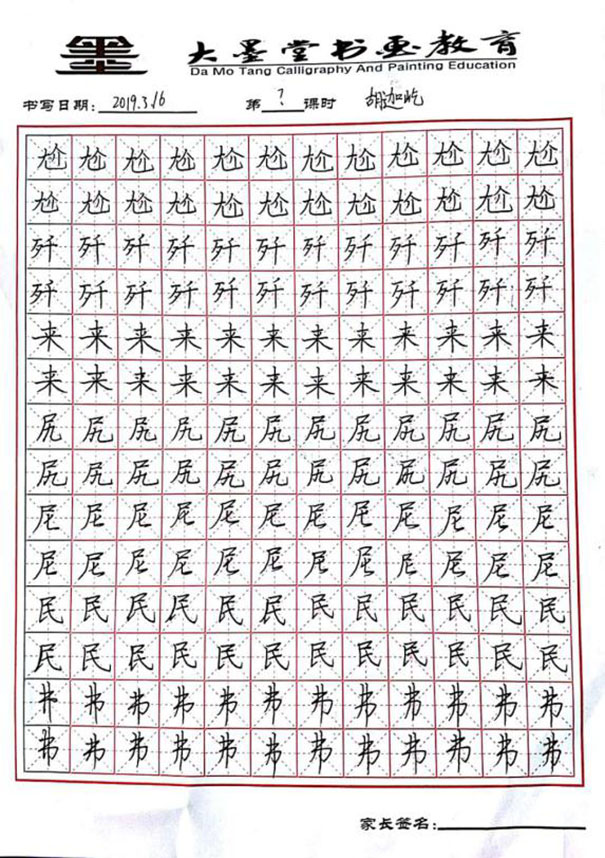 墨 大墨堂书画教育
Da Mo Tang Calligraphy And Painting Education
书写日期: 2019.3.16 第 ? 课时
尬 尬 尬 尬 尬 尬 尬 尬 尬 尬 尬 尬
尬 尬 尬 尬 尬 尬 尬 尬 尬 尬 尬 尬
歼 歼 歼 歼 歼 歼 歼 歼 歼 歼 歼 歼
歼 歼 歼 歼 歼 歼 歼 歼 歼 歼 歼 歼
来 来 来 来 来 来 来 来 来 来 来 来
来 来 来 来 来 来 来 来 来 来 来 来
尻 尻 尻 尻 尻 尻 尻 尻 尻 尻 尻 尻
尻 尻 尻 尻 尻 尻 尻 尻 尻 尻 尻 尻
尼 尼 尼 尼 尼 尼 尼 尼 尼 尼 尼 尼
尼 尼 尼 尼 尼 尼 尼 尼 尼 尼 尼 尼
民 民 民 民 民 民 民 民 民 民 民 民
民 民 民 民 民 民 民 民 民 民 民 民
弗 弗 弗 弗 弗 弗 弗 弗 弗 弗 弗 弗
弗 弗 弗 弗 弗 弗 弗 弗 弗 弗 弗 弗
家长签名: